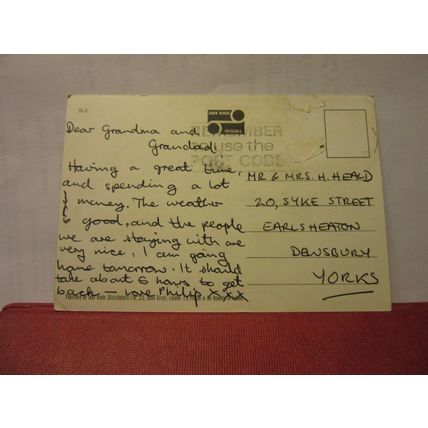 3L3
JOHN HINDE
ORIGINAL
REMEMBER
use the
POST CODE
Dear Grandma and
Grandad
Having a great time,
and spending a lot
of money. The weather
is good, and the people
we are staying with are
very nice. I am going
home tomorrow. It should
take about 6 hours to get
back — love Philip xxx
MR & MRS. H. HEALD
20, SYKE STREET
EARLSHEATON
DEWSBURY
YORKS
Published by John Hinde (Distributors) Ltd., Street, London